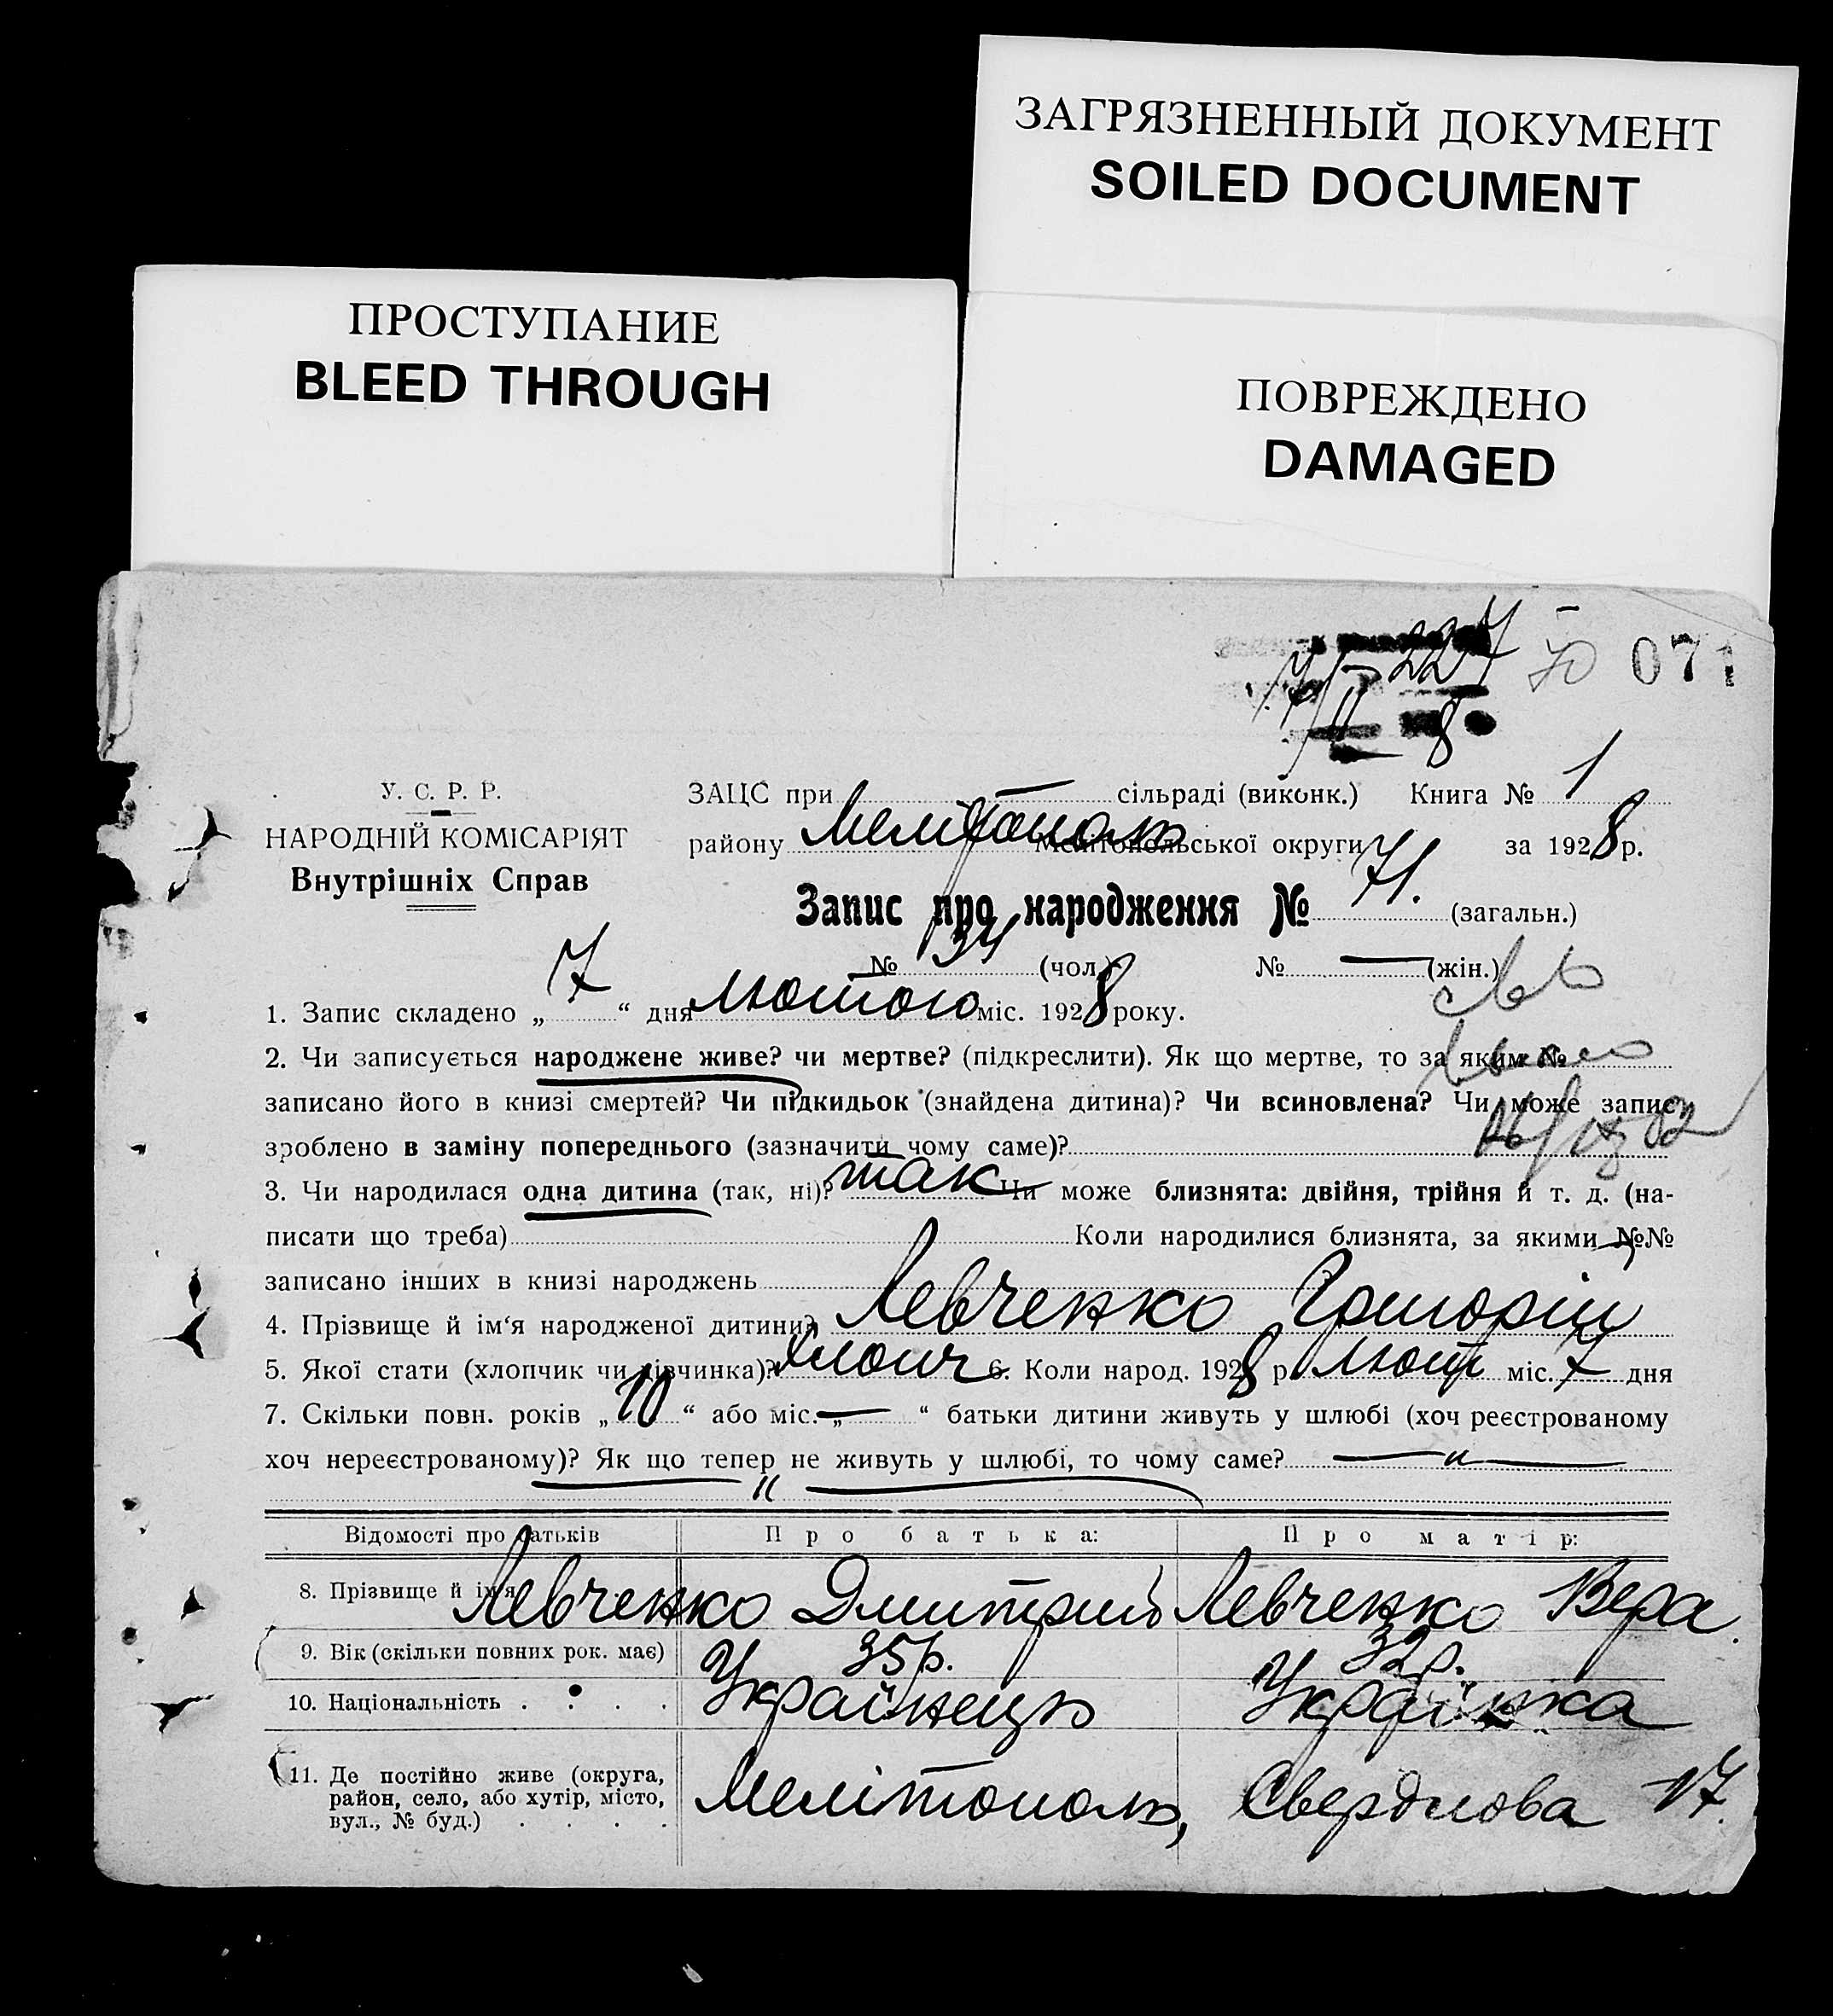 ЗАГРЯЗНЕННЫЙ ДОКУМЕНТ
SOILED DOCUMENT
ПРОСТУПАНИЕ
BLEED THROUGH
ПОВРЕЖДЕНО
DAMAGED
227 70 071
7/II 8
У. С. Р. Р.
НАРОДНІЙ КОМІСАРІЯТ
Внутрішніх Справ
ЗАЦС при сільраді (виконк.) Книга № 1
району Мелітополь Мелітопольської округи за 1928 р.
Запис про народження № 71. (загальн.)
№ 34 (чол.) № — (жін.)
1. Запис складено „ 7 “ дня лютого міс. 1928 року.
2. Чи записується народжене живе? чи мертве? (підкреслити). Як що мертве, то за яким №
записано його в книзі смертей? Чи підкидьок (знайдена дитина)? Чи всиновлена? Чи може запис
зроблено в заміну попереднього (зазначити чому саме)?
3. Чи народилася одна дитина (так, ні)? так Чи може близнята: двійня, трійня й т. д. (на-
писати що треба) Коли народилися близнята, за якими №№
записано інших в книзі народжень
4. Прізвище й ім‘я народженої дитини? Левченко Григорій
5. Якої стати (хлопчик чи дівчинка)? хлопч 6. Коли народ. 1928 р. лют міс. 7 дня
7. Скільки повн. років „ 10 “ або міс. „ — “ батьки дитини живуть у шлюбі (хоч реєстрованому
хоч нереєстрованому)? Як що тепер не живуть у шлюбі, то чому саме? — „ —
— „ —
Відомості про батьків Про батька: Про матір:
8. Прізвище й ім'я Левченко Дмитрий Левченко Вера
9. Вік (скільки повних рок. має) 35 р. 32 р.
10. Національність . . . . Українець Українка
11. Де постійно живе (округа,
район, село, або хутір, місто,
вул., № буд.) . . . .
Мелітополь, Свердлова 17.